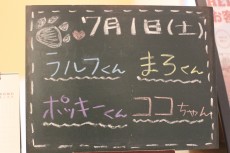 7月1日(土)
ラルフくん まろくん
ポッキーくん ココちゃん